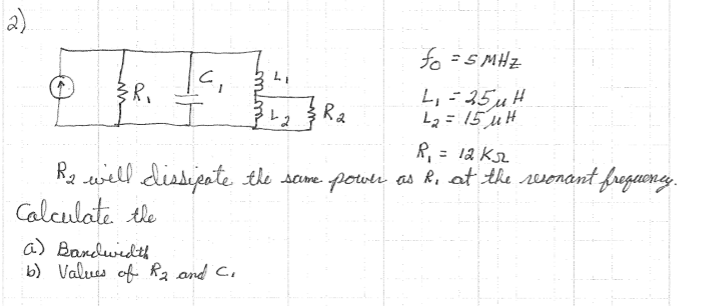 2)
R₁
C₁
L₁
L₂
R₂
f₀ = 5 MHz
L₁ = 25 μH
L₂ = 15 μH
R₁ = 12 KΩ
R₂ will dissipate the same power as R₁ at the resonant frequency.
Calculate the
a) Bandwidth
b) Values of R₂ and C₁